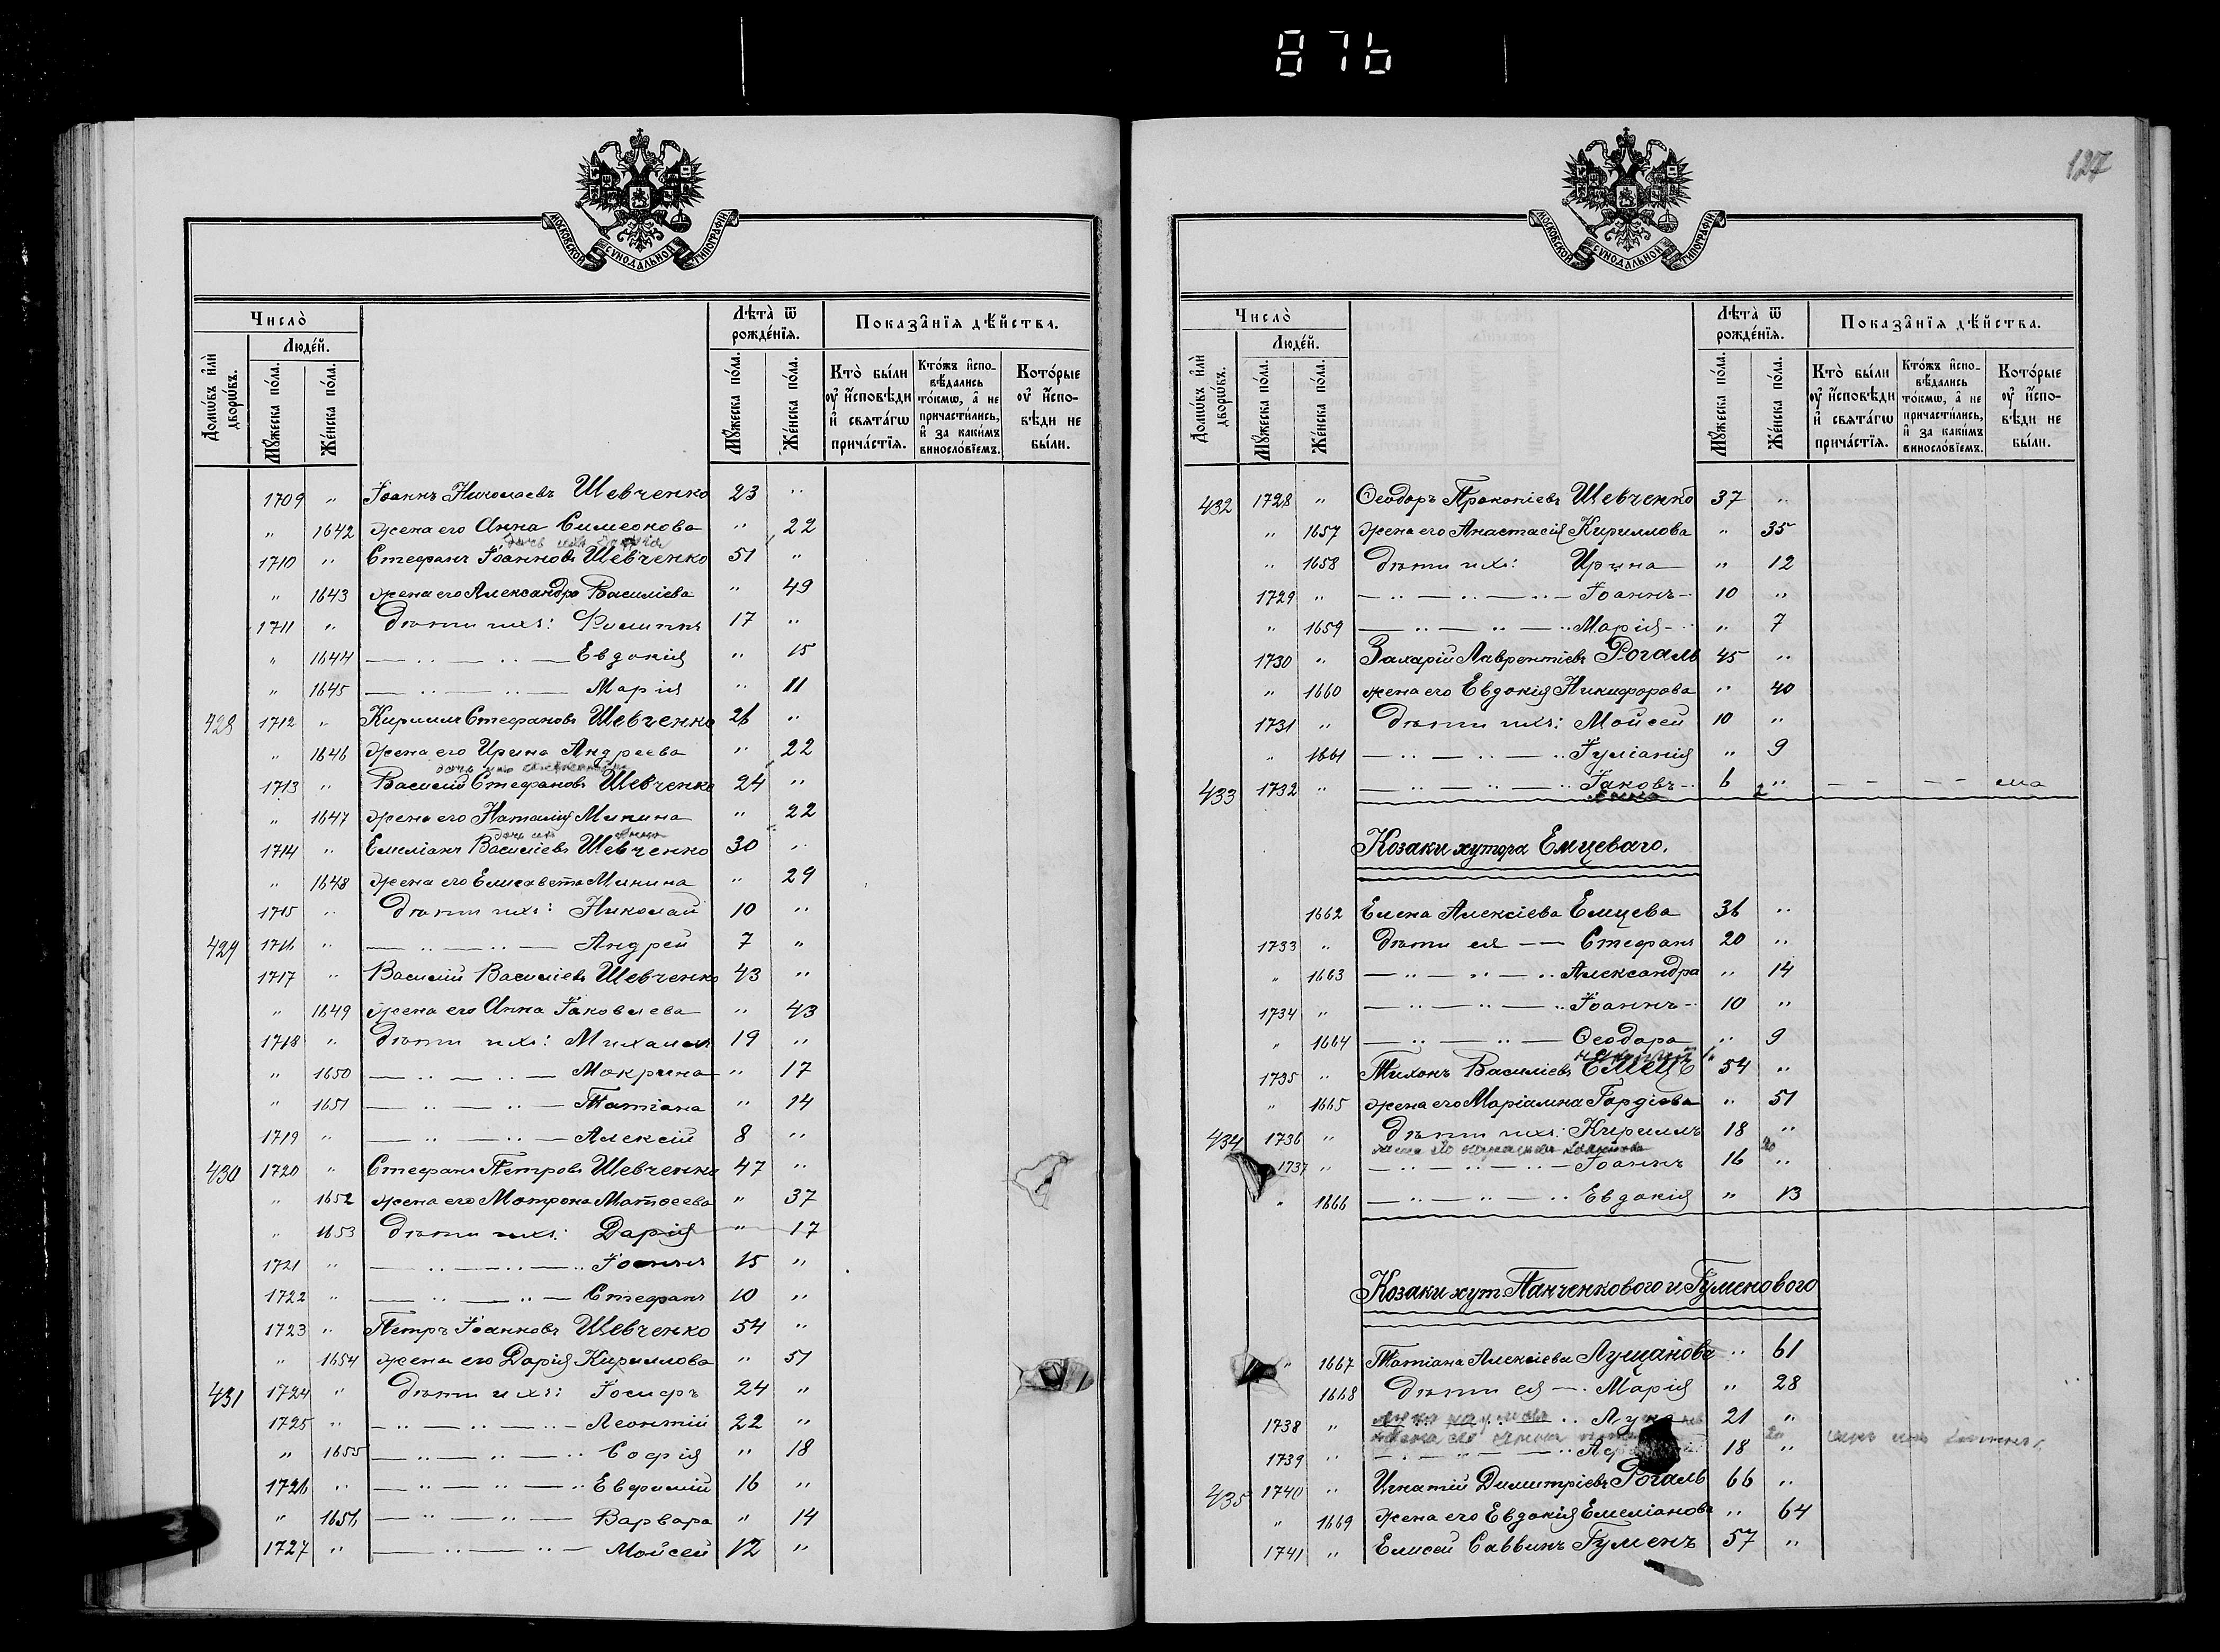 876
127
МОСКОВСКОЙ СѴНОДАЛЬНОЙ ТИПОГРАФІИ
Число̀
Людє́й.
Домѡ́въ и҆лѝ дворѡ́въ.
Мꙋ́жеска по́ла.
Же́нска по́ла.
Лѣта̀ ѿ рождє́нїѧ.
Мꙋ́жеска по́ла.
Же́нска по́ла.
Показа̑нїѧ дѣ́йства.
Кто̀ бы́ли ᲂу҆ и҆́сповѣди и҆ свѧта́гѡ прича́стїѧ.
Кто́жъ и҆спо-вѣ́дались то́кмѡ, а҆ не причасти́лись, и҆ за каки́мъ виносло́вїемъ.
Кото́рые ᲂу҆ и҆́спо-вѣди не бы́ли.
1709 " Іоаннъ Николаевъ Шевченко 23 "
" 1642 жена его Анна Симеонова " 22
1710 " Стефанъ Іоанновъ Шевченко 51 "
" 1643 жена его Александра Василіева " 49
1711 " Дѣти ихъ: Филиппъ 17 "
" 1644 — " — " — Евдокія " 15
" 1645 — " — " — Марія " 11
428 1712 " Кириллъ Стефановъ Шевченко 26 "
" 1646 жена его Ирина Андреева " 22
1713 " Василій Стефановъ Шевченко 24 "
" 1647 жена его Наталія Минина " 22
дочь их Анна
1714 " Емеліанъ Василіевъ Шевченко 30 "
" 1648 жена его Елисавета Минина " 29
1715 " Дѣти ихъ: Николай 10 "
429 1716 " — " — " — Андрей 7 "
1717 " Василій Василіевъ Шевченко 43 "
" 1649 жена его Анна Іаковлева " 43
1718 " Дѣти ихъ: Михаилъ 19 "
" 1650 — " — " — Макрина " 17
" 1651 — " — " — Татіана " 14
1719 " — " — " — Алексій 8 "
430 1720 " Стефанъ Петровъ Шевченко 47 "
" 1652 жена его Мотрона Матѳеева " 37
" 1653 Дѣти ихъ: Дарія " 17
1721 " — " — " — Іоаннъ 15 "
1722 " — " — " — Стефанъ 10 "
1723 " Петръ Іоанновъ Шевченко 54 "
" 1654 жена его Дарія Кириллова " 51
431 1724 " Дѣти ихъ: Іосифъ 24 "
1725 " — " — " — Леонтій 22 "
" 1655 — " — " — Софія " 18
1726 " — " — " — Евфимій 16 "
" 1656 — " — " — Варвара " 14
1727 " — " — " — Мойсей 12 "
МОСКОВСКОЙ СѴНОДАЛЬНОЙ ТИПОГРАФІИ
Число̀
Людє́й.
Домѡ́въ и҆лѝ дворѡ́въ.
Мꙋ́жеска по́ла.
Же́нска по́ла.
Лѣта̀ ѿ рождє́нїѧ.
Мꙋ́жеска по́ла.
Же́нска по́ла.
Показа̑нїѧ дѣ́йства.
Кто̀ бы́ли ᲂу҆ и҆́сповѣди и҆ свѧта́гѡ прича́стїѧ.
Кто́жъ и҆спо-вѣ́дались то́кмѡ, а҆ не причасти́лись, и҆ за каки́мъ виносло́вїемъ.
Кото́рые ᲂу҆ и҆́спо-вѣди не бы́ли.
432 1728 " Ѳеодоръ Прокопіевъ Шевченко 37 "
" 1657 жена его Анастасія Кириллова " 35
" 1658 Дѣти ихъ: Ирина " 12
1729 " — " — " — Іоаннъ 10 "
" 1659 — " — " — Марія " 7
1730 " Захарій Лаврентіевъ Рогаль 45 "
" 1660 жена его Евдокія Никифорова " 40
1731 " Дѣти ихъ: Мойсей 10 "
" 1661 — " — " — Іуліанія " 9
433 1732 " — " — " — Іаковъ 6 "
Козаки хутора Емцеваго.
1662 Елена Алексіева Емцева 36 "
1733 " Дѣти ея — Стефанъ 20 "
" 1663 — " — " — Александра " 14
1734 " — " — " — Іоаннъ 10 "
" 1664 — " — " — Ѳеодора " 9
1735 " Тихонъ Василіевъ Емецъ 54 "
" 1665 жена его Маріамна Гордіева " 51
434 1736 " Дѣти ихъ: Кириллъ 18 "
1737 " — " — " — Іоаннъ 16 "
" 1666 — " — " — Евдокія " 13
Козаки хут Панченкового и Гуменового
" 1667 Татіана Алексіева Лущанова " 61
1668 Дѣти ея — Марія " 28
1738 " 21 "
1739 " 18 "
435 1740 " Игнатій Димитріевъ Рогаль 66 "
" 1669 жена его Евдокія Емеліанова " 64
1741 " Елисей Саввинъ Гуменъ 57 "